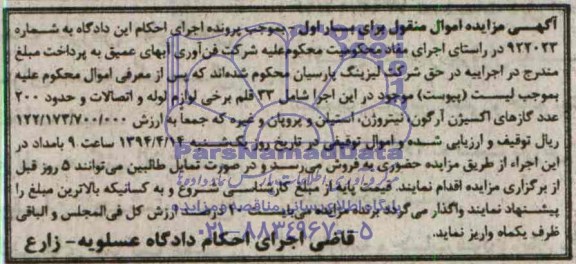 آگهی مزایده اموال منقول برای بار اول - بموجب پرونده اجرای احکام این دادگاه به شماره
۹۲۲۰۲۳ در راستای اجرای مفاد محکومیت محکوم‌علیه شرکت فن‌آوری آبهای عمیق به پرداخت مبلغ
مندرج در اجراییه در حق شرکت لیزینگ پارسیان محکوم شده‌اند که پس از معرفی اموال محکوم علیه
بموجب لیست (پیوست) موجود در این اجرا شامل ۳۳ قلم برخی لوازم لوله و اتصالات و حدود ۲۰۰
عدد گازهای اکسیژن آرگون، نیتروژن، استیلن و پروپان و غیره که جمعا به ارزش ۱۲۲/۱۷۳/۷۰۰/۰۰۰
ریال توقیف و ارزیابی شده و اموال توقیفی در تاریخ روز یک‌شنبه ۱۳۹۴/۴/۱۴ ساعت ۹ بامداد در
این اجراء از طریق مزایده حضوری به فروش می‌رسد و در صورت تمایل طالبین می‌توانند ۵ روز قبل
از برگزاری مزایده اقدام نمایند. قیمت پایه از مبلغ و به کسانیکه بالاترین مبلغ را
پیشنهاد نمایند واگذار می‌گردد برنده مزایده می‌بایست ۱۰ درصد ارزش کل فی‌المجلس و الباقی
ظرف یکماه واریز نماید.
قاضی اجرای احکام دادگاه عسلویه- زارع
ParsNamadData
پایگاه اطلاع‌رسانی مناقصه و مزایده
۰۲۱-۸۸۳۴۹۶۷۰-۵